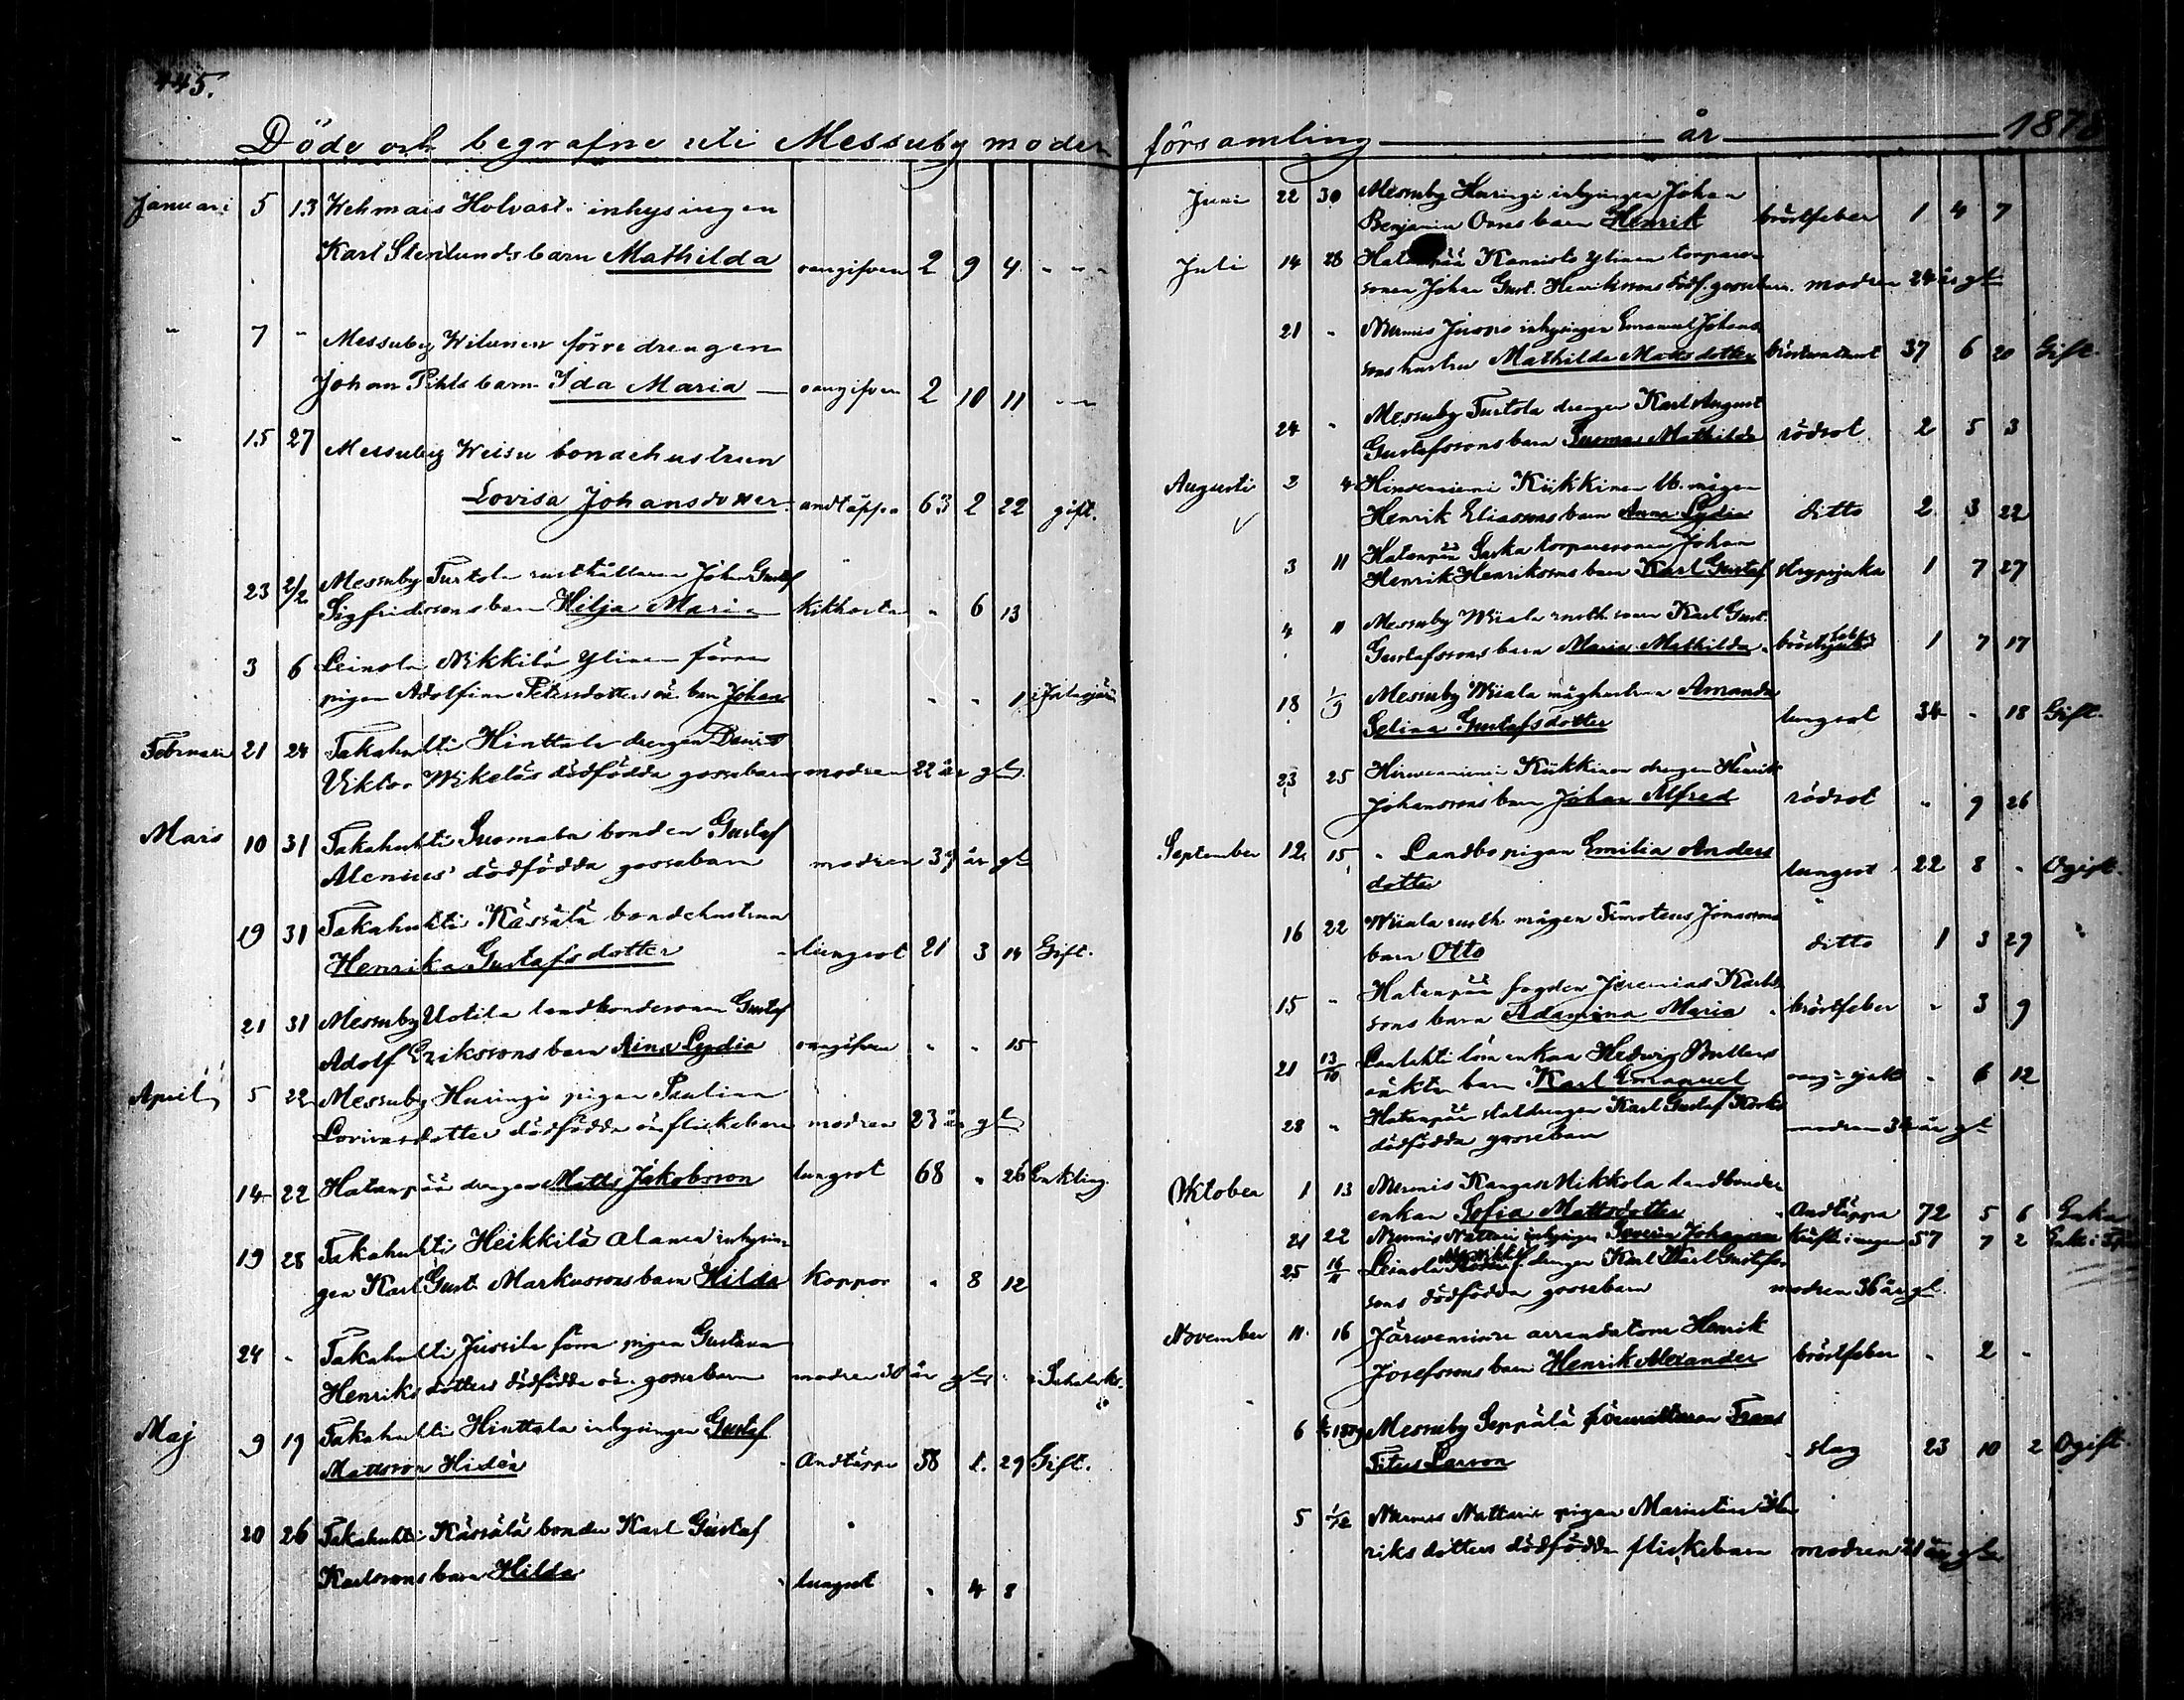 445.
Döde och begrafne uti Messuby moder församling år 1878
Januari 5 13 Wehmais Holvast. inhysingen
Karl Stenlunds barn Mathilda oangifven 2 9 4 - - -
" 7 " Messuby Wilunen förre drengen
Johan Pihls barn Ida Maria — oangifven 2 10 11 - -
" 15 27 Messuby Weisu bondehustrun
Lovisa Johansdotter andtäppa 63 2 22 gift.
23 2/2 Messuby Turtola rusthållaren Johan Gustaf
Sigfridssons barn Hilja Maria Kikhosta " 6 13
3 6 Leinola Nikkilä Ylinen förra
pigan Adolfina Petersdotters oä. barn Johan " " 1
Februari 21 24 Takahuhti Hinttala drengen David
Viktor Wikeläs dödfödda gossebarn modren 22 år gl.
Mars 10 31 Takahuhti Suomala bonden Gustaf
Alenius' dödfödda gossebarn modren 39 år gl
19 31 Takahuhti Kässälä bondehustrun
Henrika Gustafsdotter lungsot 21 3 14 Gift.
21 31 Messuby Uotila landbondesonen Gustaf
Adolf Erikssons barn Aina Lydia oangifven " " 15
April 5 22 Messuby Huringi pigan Paulina
Lovisasdotter dödfödda oä flickebarn modren 23 år gl
14 22 Hatanpää drengen Matts Jakobsson lungsot 68 " 26 Enkling
19 28 Takahuhti Heikkilä Alanen inhysin-
gen Karl Gust. Markussons barn Hilda Koppor " 8 12
24 " Takahuhti Jussila förra pigan Gustava
Henriksdotters dödfödda oä. gossebarn modren 38 år gl
Maj 9 19 Takahuhti Hinttala inhysingen Gustaf
Mattsson Hidén Andtäppa 58 1 29 Gift.
20 26 Takahuhti Kässälä bonden Karl Gustaf
Karlssons barn Hilda lungsot " 4 8
Juni 22 30 Messuby Huringi inhysingen Johan
Benjamin Oras barn Henrik bröstfeber 1 4 7
Juli 14 28 Hatanpää Kansisto Ylinen torpare-
sonen Johan Gust. Henrikssons dödf. gossebarn. modren 24 år gl
21 " Nurmis Juopo inhysingen Emanuel Johans-
sons hustru Mathilda Mattsdotter 37 6 20 Gift.
24 " Messuby Turtola drengen Karl August
Gustafssons barn Mathilda rödsot 2 5 3
Augusti 3 4 Kiikkinen mågen
Henrik Eliassons barn Anna Lydia ditto 2 3 22
3 11 Hatanpää torparesonen Johan
Henrik Henrikssons barn Karl Gustaf strypsjuka 1 7 27
4 11 Messuby Wiiala rusth. sonen Karl Gust.
Gustafssons barn Maria Mathilda 1 7 17
18 1/9 Messuby Wiiala måghustrun Amanda
Selina Gustafsdotter lungsot 34 " 18 Gift.
23 25 Hirvenniemi Kiikkinen drengen Henrik
Johanssons barn Johan Alfred rödsot " 9 26
September 12 15 " Landbo pigan Emilia Anders
dotter lungsot 22 8 " Ogift.
16 22 Wiiala rusth. mågen Timoteus Jonassons
barn Otto ditto 1 3 29 "
15 " Hatanpää fogden Jeremias Karls-
sons barn Adamina Maria bröstfeber " 3 9
21 13/10 enkan Hedvig
oäkta barn Karl Emanuel " 6 12
28 " Hatanpää statdrengen Karl Gustaf
dödfödda gossebarn modren 34 år gl
Oktober 1 13 Nurmis Kangas Mikkola landbonde
enkan Sofia Mattsdotter Andtäppa 72 5 6 Enka
21 22 Nurmis Nattari inhysingen Severin Johansson Kräfta i magen 57 7 2
25 16/11 Leinola f. drengen Karl Karl Gustafs-
sons dödfödda gossebarn modren 36 år gl.
November 11 16 Järvensivu arrendatorn Henrik
Josefssons barn Henrik Alexander bröstfeber " 2 "
6 Messuby Seppälä Frans
Titus Larson slag 23 10 2 Ogift
5 1/12 Nurmis Nattari pigan Hen-
riks dotters dödfödda flickebarn modren 21 år gl